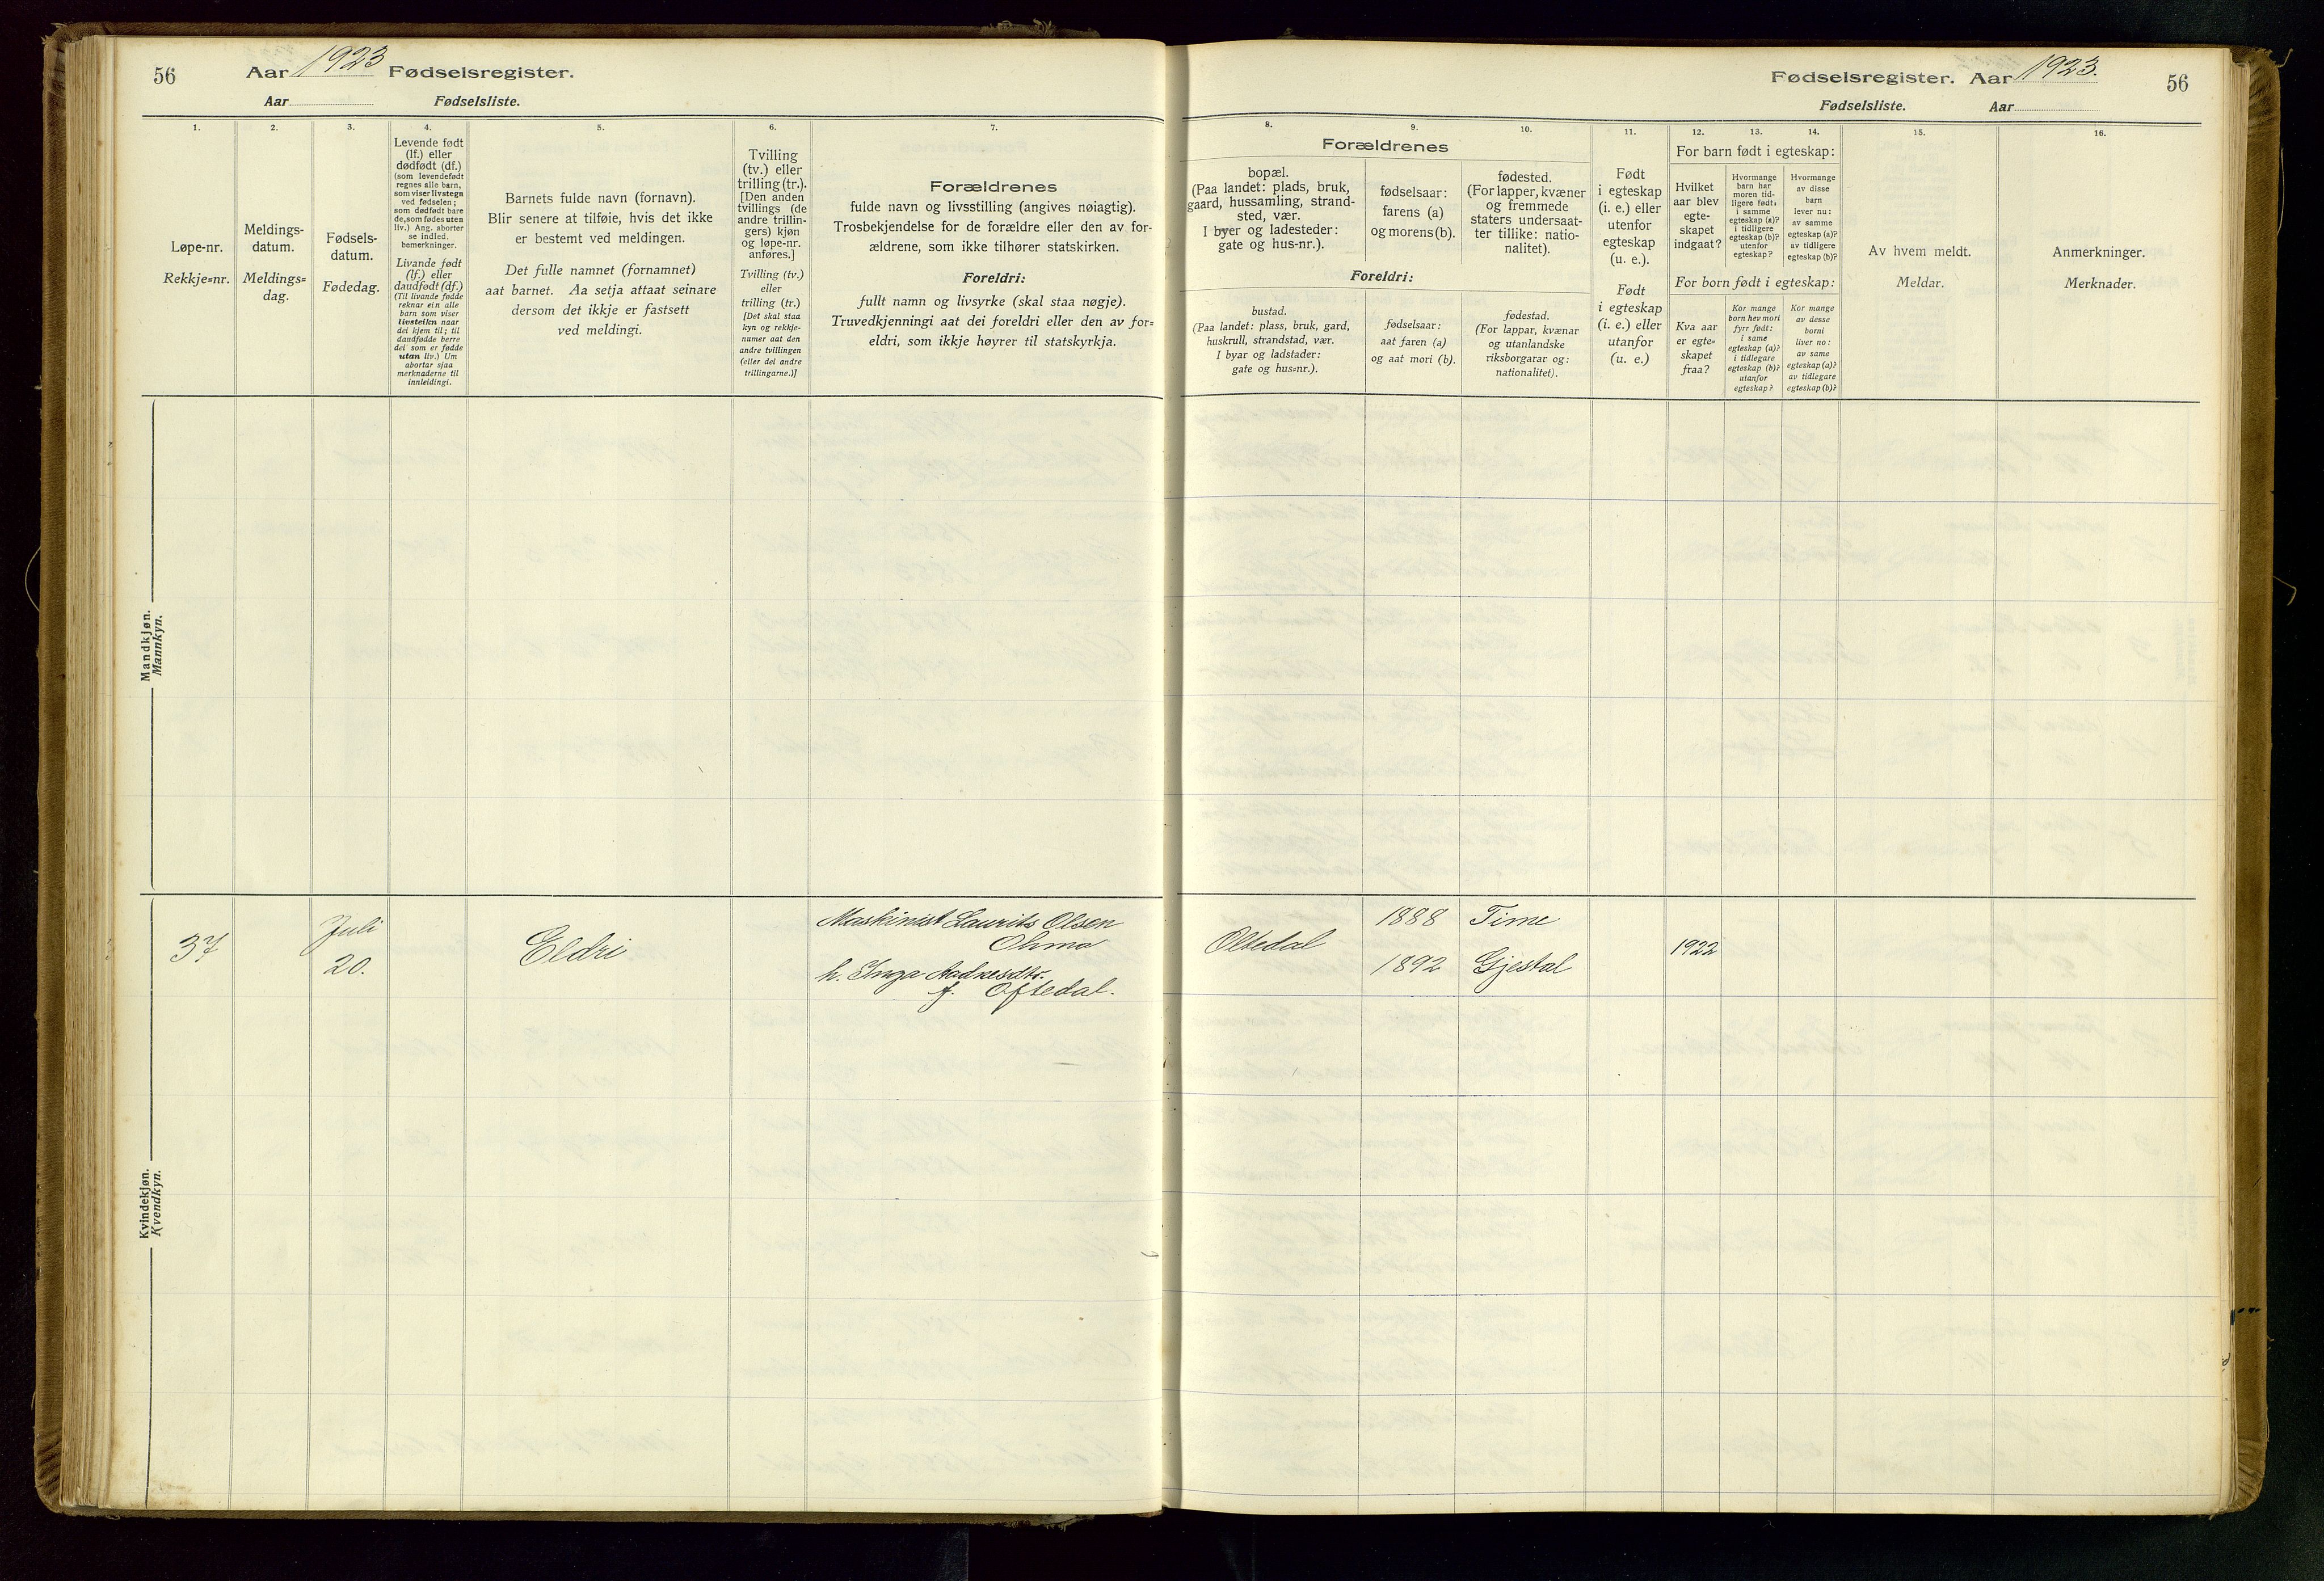 56
Aar 1923 Fødselsregister.
Aar Fødselsliste.
1.
Løpe-nr.
Rekkje-nr.
2.
Meldings-
datum.
Meldings-
dag.
3.
Fødsels-
datum.
Fødedag.
4.
Levende født
(lf.) eller
dødfødt (df.)
(som levendefødt
regnes alle barn,
som viser livstegn
ved fødselen;
som dødfødt bare
de, som fødes uten
liv.) Ang. aborter
se indled.
bemerkninger.
Livande født
(lf.) eller
daudfødt (df.)
(Til livande fødde
reknar ein alle
barn som viser
livsteikn naar
dei kjem til; til
daudfødde berre
dei som er fødde
utan liv.) Um
abortar sjaa
merknaderne til
innleidingi.
5.
Barnets fulde navn (fornavn).
Blir senere at tilføie, hvis det ikke
er bestemt ved meldingen.
Det fulle namnet (fornamnet)
aat barnet. Aa setja attaat seinare
dersom det ikkje er fastsett
ved meldingi.
6.
Tvilling
(tv.) eller
trilling (tr.).
[Den anden
tvillings (de
andre trillin-
gers) kjøn
og løpe-nr.
anføres.]
Tvilling (tv.)
eller
trilling (tr.)
[Det skal staa
kyn og rekkje-
numer aat den
andre tvillingen
(eller dei andre
trillingarne.)]
7.
Forældrenes
fulde navn og livsstilling (angives nøiagtig).
Trosbekjendelse for de forældre eller den av for-
ældrene, som ikke tilhører statskirken.
Foreldri:
fullt namn og livsyrke (skal staa nøgje).
Truvedkjenningi aat dei foreldri eller den av for-
eldri, som ikkje høyrer til statskyrkja.
Mandkjøn.
Mannkyn.
37
Juli
20.
Eldri
Maskinist Laurits Olsen
Ohma
h. Inga Aadnesdtr.
f. Oftedal.
Kvindekjøn.
Kvendkyn.
Fødselsregister. Aar 1923.
56
Fødselsliste. Aar
Forældrenes
8.
bopæl.
(Paa landet: plads, bruk,
gaard, hussamling, strand-
sted, vær.
I byer og ladesteder:
gate og hus-nr.).
9.
fødselsaar:
farens (a)
og morens (b).
10.
fødested.
(For lapper, kvæner
og fremmede
staters undersaat-
ter tillike: natio-
nalitet).
Foreldri:
bustad.
(Paa landet: plass, bruk, gard,
huskrull, strandstad, vær.
I byar og ladstader:
gate og hus-nr.).
fødselsaar:
aat faren (a)
og aat mori (b).
fødestad.
(For lappar, kvænar
og utanlandske
riksborgarar og:
nationalitet).
11.
Født
i egteskap
(i. e.) eller
utenfor
egteskap
(u. e.).
Født
i egteskap
(i. e.) eller
utanfor
(u. e.)
For barn født i egteskap:
12.
Hvilket
aar blev
egte-
skapet
indgaat?
13.
Hvormange
barn har
moren tid-
ligere født:
i samme
egteskap (a)?
i tidligere
egteskap (b)?
utenfor
egteskap?
14.
Hvormange
av disse
barn
lever nu:
av samme
egteskap (a)?
av tidligere
egteskap (b)?
For born født i egteskap:
Kva aar
er egte-
skapet
fraa?
Kor mange
born hev mori
fyrr født:
i same
egteskap (a)?
i tidlegare
egteskap (b)?
utanfor
egteskap?
Kor mange
av desse
borni
liver no:
av same
egteskap (a)?
av tidlegare
egteskap (b)?
15.
Av hvem meldt.
Meldar.
16.
Anmerkninger.
Merknader.
Oltedal
1888 Time
1892 Gjestal
1922